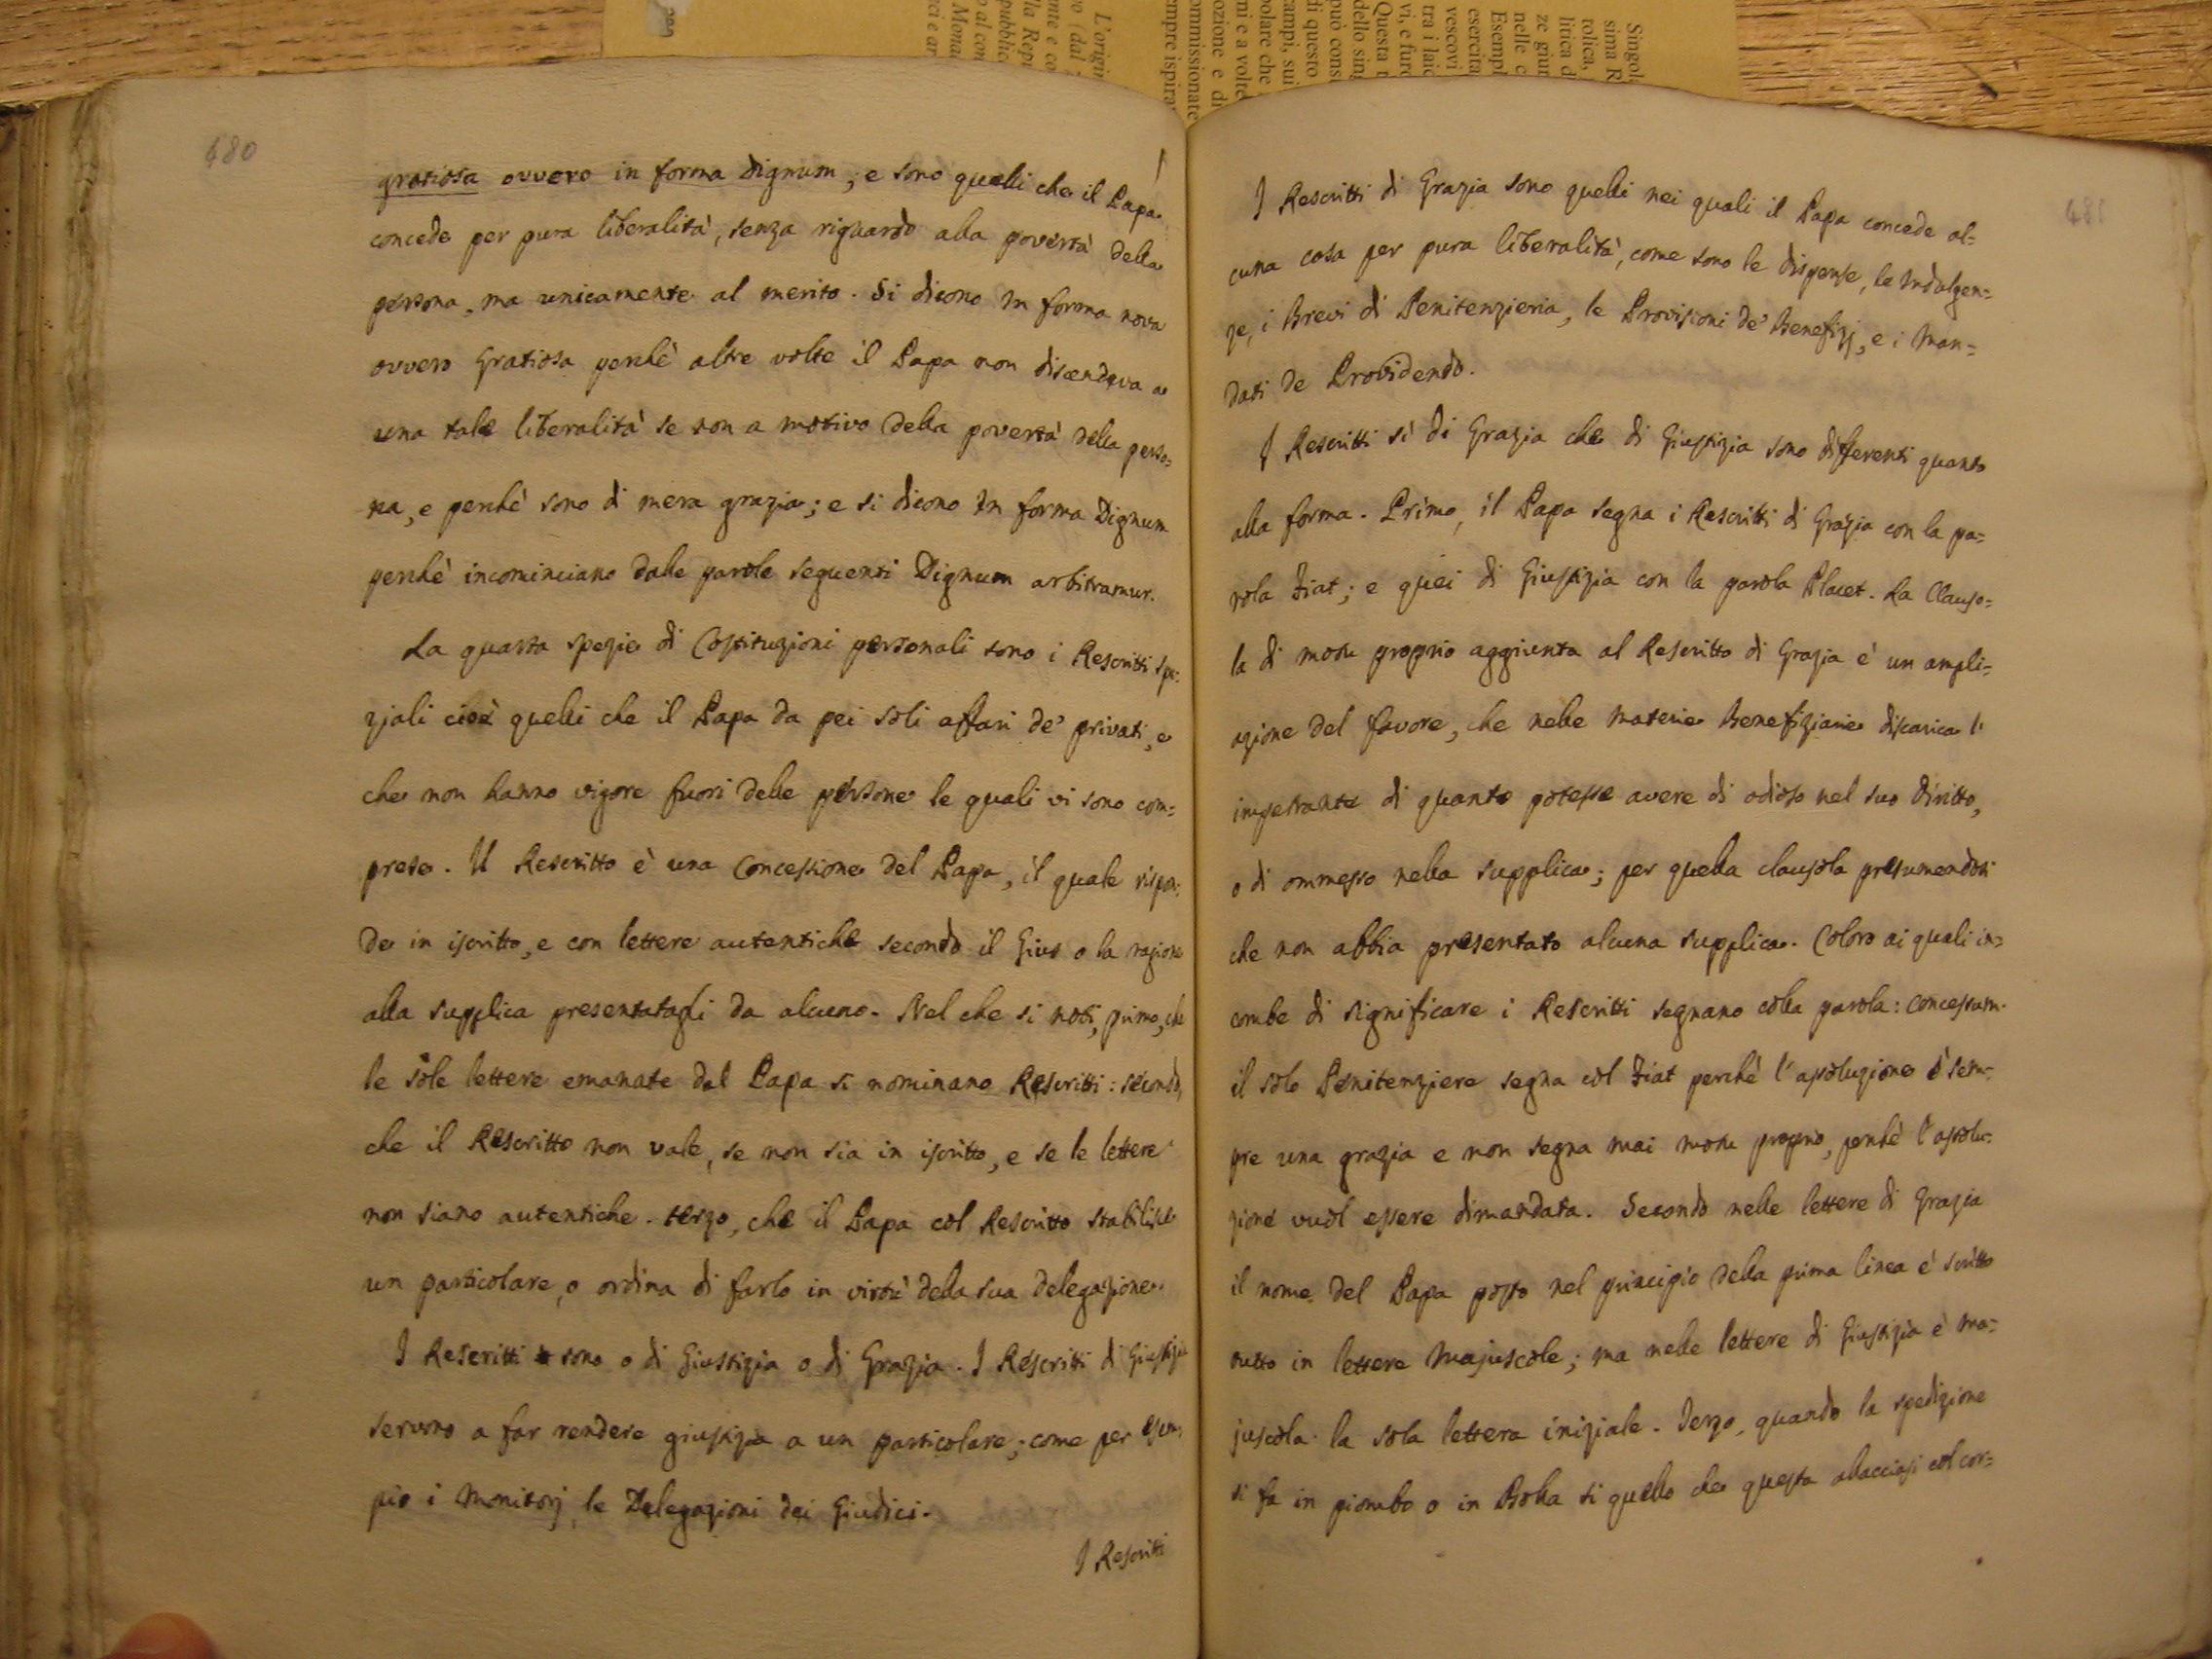 480
gratiosa ovvero in forma Dignum; e sono quelli che il Papa
concede per pura liberalità, senza riguardo alla povertà della
persona, ma unicamente al merito. Si dicono In forma nova
ovvero Gratiosa perchè altre volte il Papa non discendeva a
una tale liberalità se non a motivo della povertà della perso=
na, e perchè sono di mera grazia; e si dicono In forma Dignum
perchè incominciano dalle parole seguenti Dignum arbitramur.
La quarta spezie di Costituzioni personali sono i Rescritti spe=
ziali cioè quelli che il Papa da pei soli affari de' privati, e
che non hanno vigore fuori delle persone le quali vi sono com=
prese. Il Rescritto è una Concessione del Papa, il quale rispon=
de in iscritto, e con lettere autentiche secondo il Gius o la ragione
alla supplica presentatagli da alcuno. Nel che si noti, primo, che
le sole lettere emanate dal Papa si nominano Rescritti: secondo,
che il Rescritto non vale, se non sia in iscritto, e se le lettere
non siano autentiche. terzo, che il Papa col Rescritto stabilisce
un particolare, o ordina di farlo in virtù della sua delegazione.
I Rescritti sono o di Giustizia o di Grazia. I Rescritti di Giustizia
servono a far rendere giustizia a un particolare; come per esem=
pio i Monitorj, le Delegazioni dei Giudici.
I Rescritti
481
I Rescritti di Grazia sono quelli nei quali il Papa concede al=
cuna cosa per pura liberalità, come sono le dispense, le Indulgen=
ze, i Brevi di Penitenzieria, le Provisioni de' Benefizj, e i Man=
dati de Providendo.
I Rescritti sì di Grazia che di Giustizia sono differenti quanto
alla forma. Primo, il Papa segna i Rescritti di Grazia con la pa=
rola Fiat; e quei di Giustizia con la parola Placet. La Clauso=
la di motu proprio aggiunta al Rescritto di Grazia è un ampli=
azione del favore, che nelle materie Benefiziarie discarica l'
impetrante di quanto potesse avere di odioso nel suo diritto,
o di ommesso nella supplica; per quella clausola presumendosi
che non abbia presentato alcuna supplica. Coloro ai quali in=
combe di significare i Rescritti segnano colla parola: Concessum.
il solo Penitenziere segna col Fiat perchè l'assoluzione è sem=
pre una grazia e non segna mai motu proprio, perchè l'assolu=
zione vuol essere dimandata. Secondo nelle lettere di Grazia
il nome del Papa posto nel principio della prima linea è scritto
tutto in lettere Majuscole; ma nelle lettere di Giustizia è ma=
juscola la sola lettera iniziale. Terzo, quando la spedizione
si fa in piombo o in Bolla si quello che questa allacciasi col cor=